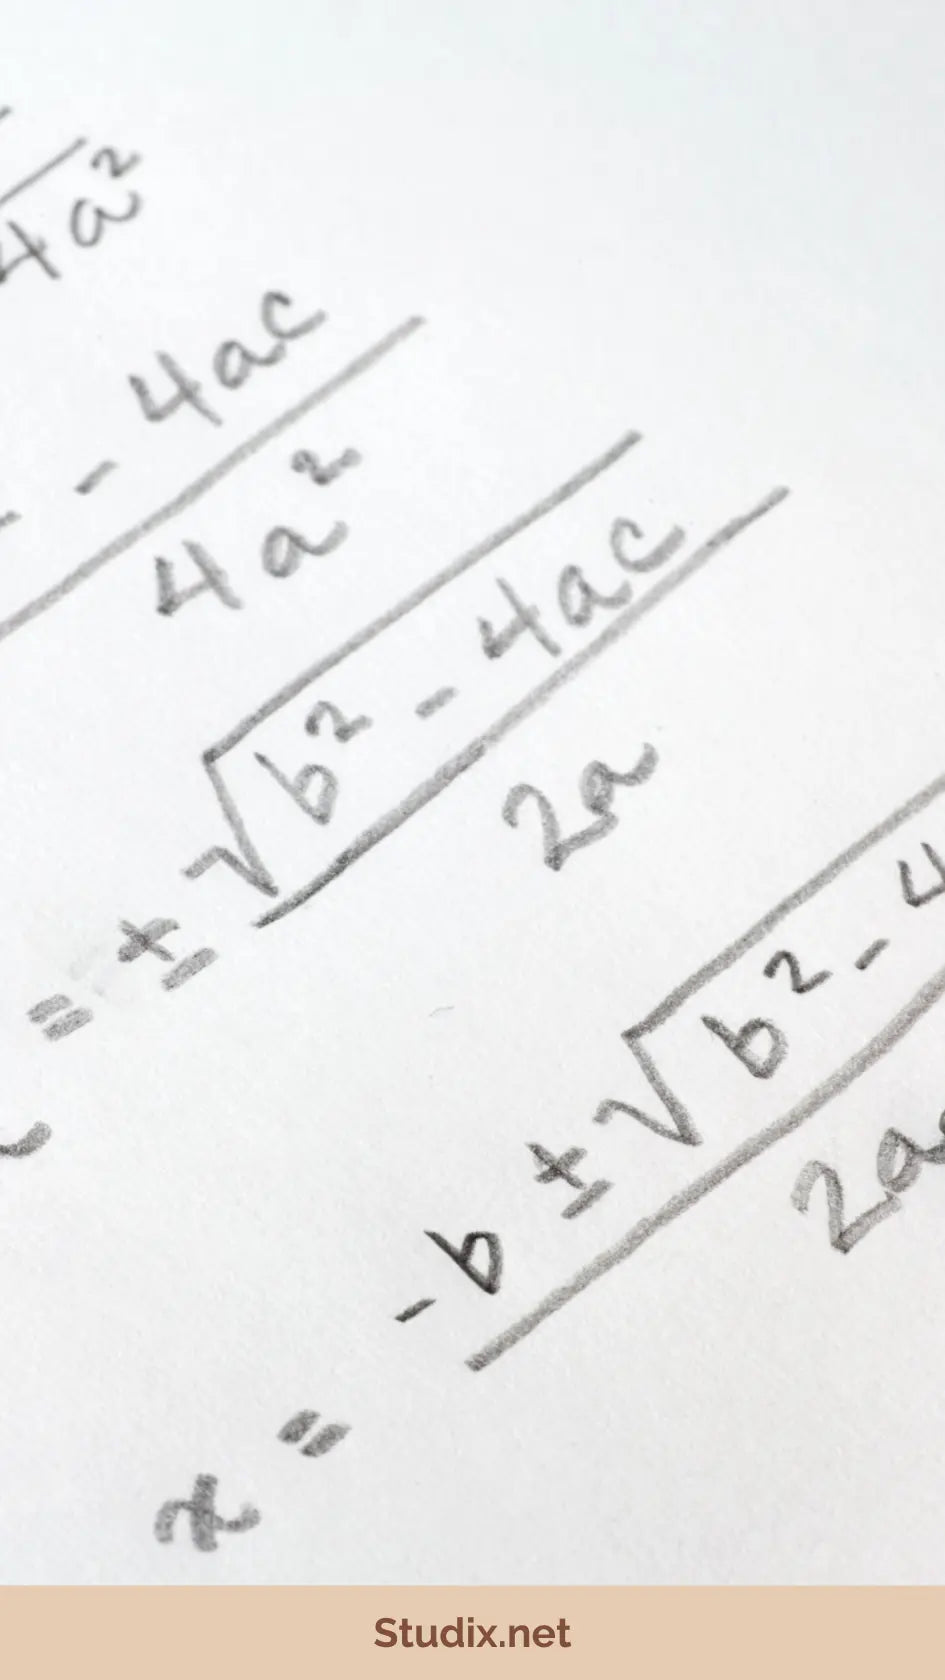 4a²
- 4ac
4a²
= ± √b² - 4ac
2a
x = -b ± √b² - 4
2a
Studix.net